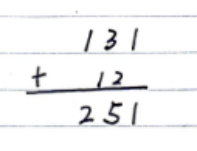 131
+ 12
251